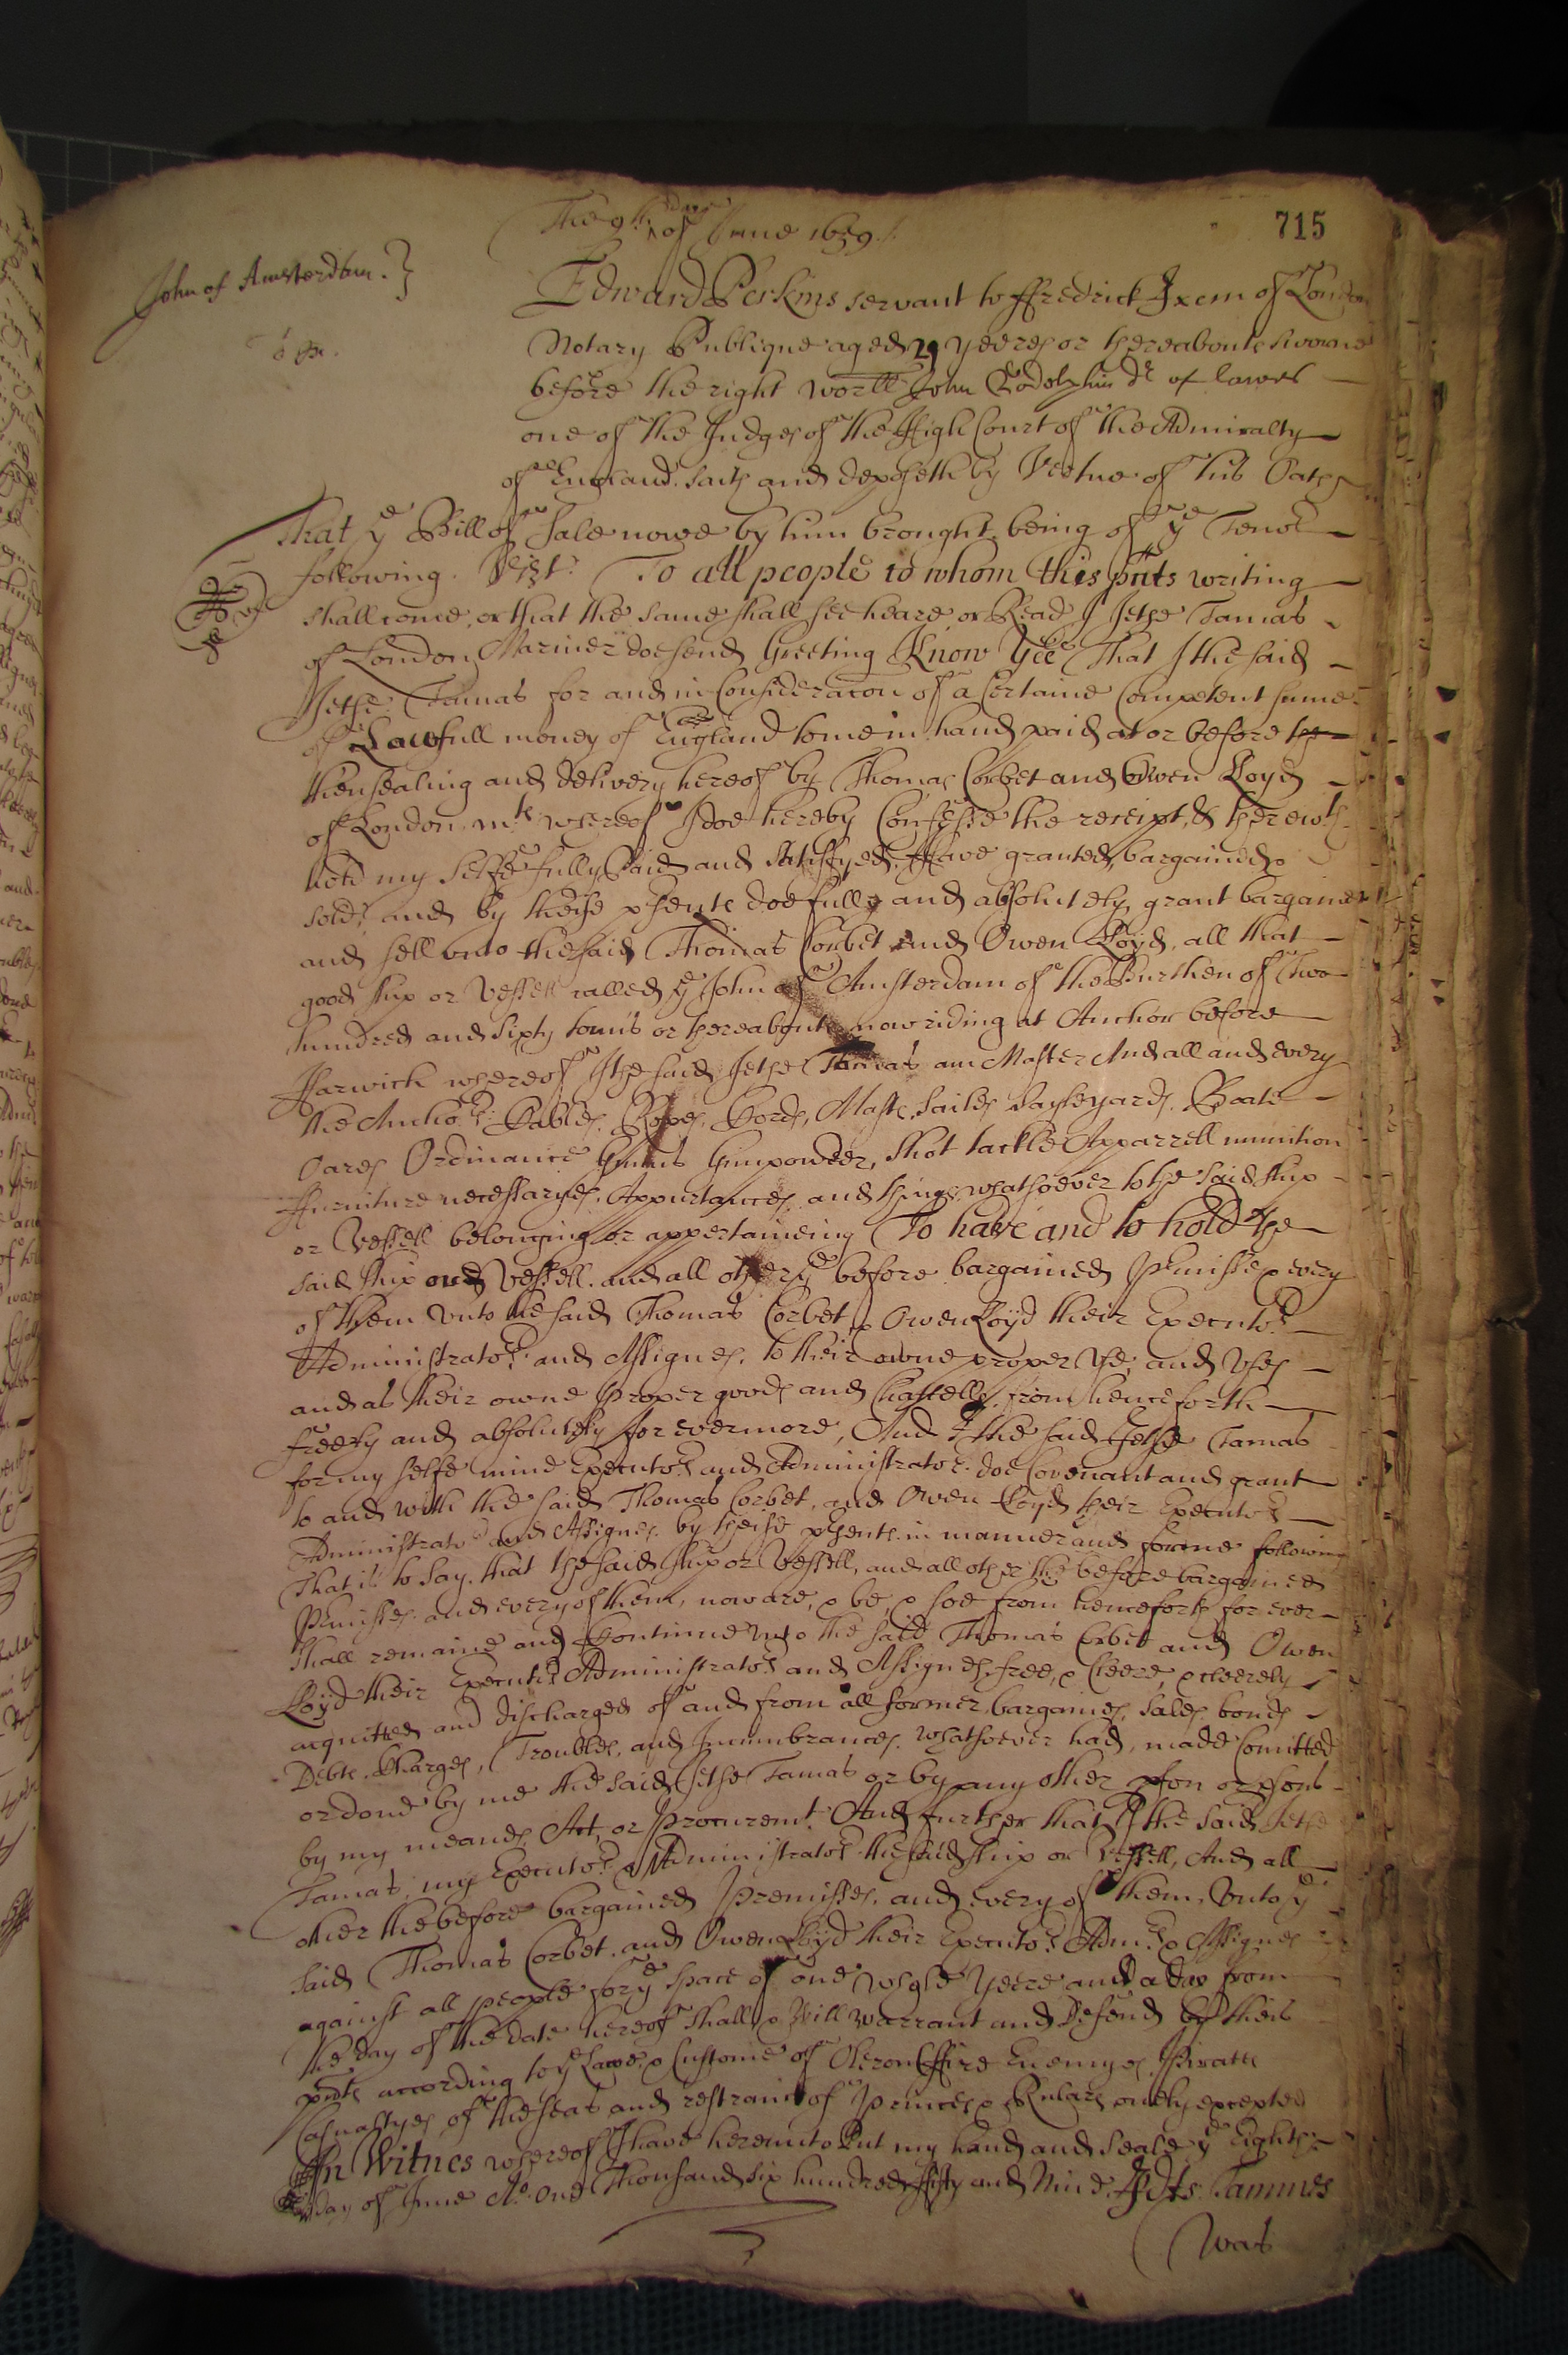 The 9th day of June 1659.
715
John of Amsterdam. }
Edward Perkins servant to ffredrick Ixem of London
Notary Publique aged 29 yeeres or thereabouts sworne
before the right worll John Godolphin Dr of lawes
one of the Judges of the High Court of the Admiralty
of England. saith and deposeth by Vertue of his Oath
That ye Bill of Sale nowe by him brought being of ye Tenor
following. Vizt. To all people to whom this pnts writing
shall come, or that the same shall see heare or Read I Jetse Tamas
of London Mariner doe send Greeting Know Yee That I the said
Jetse Tamas for and in Consideracon of a Certaine Competent sume
of Lawfull money of England to me in hand paid at or before the
thensealing and delivery hereof by Thomas Corbet and Owen Lloyd
of London mts whereof I doe hereby Confesse the receipt, & therewth
hold my Selfe fully Paid and Satisfyed, Have granted, bargained &
sold, and by these psents doe fully and absolutely, grant bargaine
and sell unto the said Thomas Corbet and Owen Lloyd, all that
good ship or Vessell called ye John of Amsterdam of the Burthen of Two
hundred and Sixty tonns or thereabouts now riding at Anchor before
Harwich whereof I the said Jetse Tamas am Master And all and every
the Anchors. Cables, Ropes, Cords, Masts, Sailes, Sayleyards, Boate
Oares Ordinance Gunns Gunpowder, Shot tackle Apparrell munition
ffurniture necessaryes, Appurtances, and things whatsoever to the said ship
or Vessell belonging or appertaineing To have and to hold the
said ship and Vessell. and all other ye before bargained Pmisses & every
of them Unto the said Thomas Corbet & Owen Lloyd their Executors
Administrators and Assignes, to their owne proper Use, and Uses
and as their owne Proper goods and Chattells, from hence forth
freely and absolutely for evermore, And I the said Jetse Tamas
for my selfe mine Executors and Administrators. doe Covenant and grant
to and with the said Thomas Corbet, and Owen Lloyd their Executors
Administrators and Assignes by these psents in manner and forme following
That is to say. that the said ship or Vessell, and all other the before bargained
Pmisses. and every of them, now are, & be, & soe from henceforth for ever
shall remaine and Continue Unto the said Thomas Corbet and Owen
Lloyd their Executors Administrators and Assignes, free, & Cleere, & cleerely
acquitted and discharged of and from all former bargaines, Sales, bonds
Debts. Charges, Troubles, and Incumbrances. whatsoever had, made Comitted
or done by me the said Jetse Tamas or by any other pson or psons
by my meanes, Act, or Procuremt. And further that I the said Jetse
Tamas, my Executors & Administrators the said ship or Vessell, And all
other the before bargained Premisses, and every of them. Unto ye
said Thomas Corbet. and Owen Lloyd their Executors Admrs & Assignes
against all people for ye space of one whole Yeere and a day from
the day of the date hereof shall & Will warrant and Defend by theis
pnts according to ye Lawes & Custome of Oleron ffire Enemyes Piratts
Casualtyes of the seas and restraint of Princes & Rulars onely excepted
In Witnes whereof I have hereunto Put my hand and Seale ye Eighth
day of June Ao. One Thousand six hundred fifty and Nine. Jets Tammes
Was